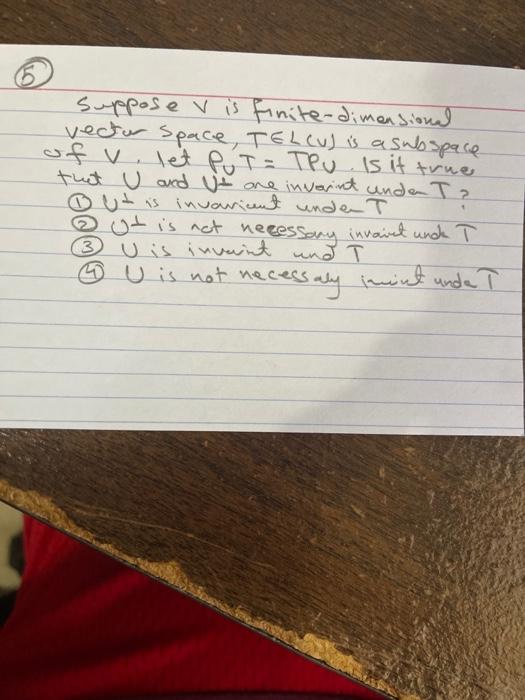 5
Suppose V is finite-dimensional
vector space, T∈L(V) is a subspace
of V. let PᵤT = TPᵤ. Is it true
that U and U⊥ are invarint under T?
① U⊥ is invariant under T
② U⊥ is not necessary invaint undr T
③ U is invaint und T
④ U is not necessaly imint unde T